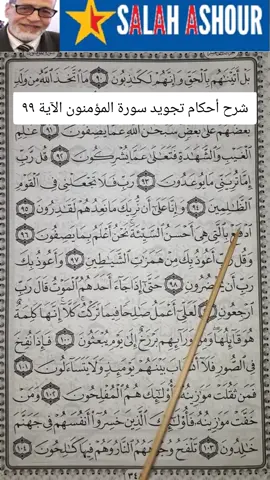 SALAH ASHOUR
بَلْ أَتَيْنَٰهُم بِالْحَقِّ وَإِنَّهُمْ لَكَٰذِبُونَ ٩٠ مَا اتَّخَذَ اللَّهُ مِن وَلَدٍ
شرح أحكام تجويد سورة المؤمنون الآية ٩٩
بَعْضُهُمْ عَلَىٰ بَعْضٍ سُبْحَٰنَ اللَّهِ عَمَّا يَصِفُونَ ٩١ عَٰلِمِ
الْغَيْبِ وَالشَّهَٰدَةِ فَتَعَٰلَىٰ عَمَّا يُشْرِكُونَ ٩٢ قُل رَّبِّ
إِمَّا تُرِيَنِّي مَا يُوعَدُونَ ٩٣ رَبِّ فَلَا تَجْعَلْنِي فِي الْقَوْمِ
الظَّٰلِمِينَ ٩٤ وَإِنَّا عَلَىٰ أَن نُّرِيَكَ مَا نَعِدُهُمْ لَقَٰدِرُونَ ٩٥
ادْفَعْ بِالَّتِي هِيَ أَحْسَنُ السَّيِّئَةَ نَحْنُ أَعْلَمُ بِمَا يَصِفُونَ ٩٦
وَقُل رَّبِّ أَعُوذُ بِكَ مِنْ هَمَزَٰتِ الشَّيَٰطِينِ ٩٧ وَأَعُوذُ بِكَ
رَبِّ أَن يَحْضُرُونِ ٩٨ حَتَّىٰ إِذَا جَاءَ أَحَدَهُمُ الْمَوْتُ قَالَ رَبِّ
ارْجِعُونِ ٩٩ لَعَلِّي أَعْمَلُ صَٰلِحًا فِيمَا تَرَكْتُ كَلَّا إِنَّهَا كَلِمَةٌ
هُوَ قَائِلُهَا وَمِن وَرَائِهِم بَرْزَخٌ إِلَىٰ يَوْمِ يُبْعَثُونَ ١٠٠ فَإِذَا نُفِخَ
فِي الصُّورِ فَلَا أَنسَابَ بَيْنَهُمْ يَوْمَئِذٍ وَلَا يَتَسَاءَلُونَ ١٠١
فَمَن ثَقُلَتْ مَوَٰزِينُهُ فَأُولَٰئِكَ هُمُ الْمُفْلِحُونَ ١٠٢ وَمَنْ
خَفَّتْ مَوَٰزِينُهُ فَأُولَٰئِكَ الَّذِينَ خَسِرُوا أَنفُسَهُمْ فِي جَهَنَّمَ
خَٰلِدُونَ ١٠٣ تَلْفَحُ وُجُوهَهُمُ النَّارُ وَهُمْ فِيهَا كَٰلِحُونَ ١٠٤